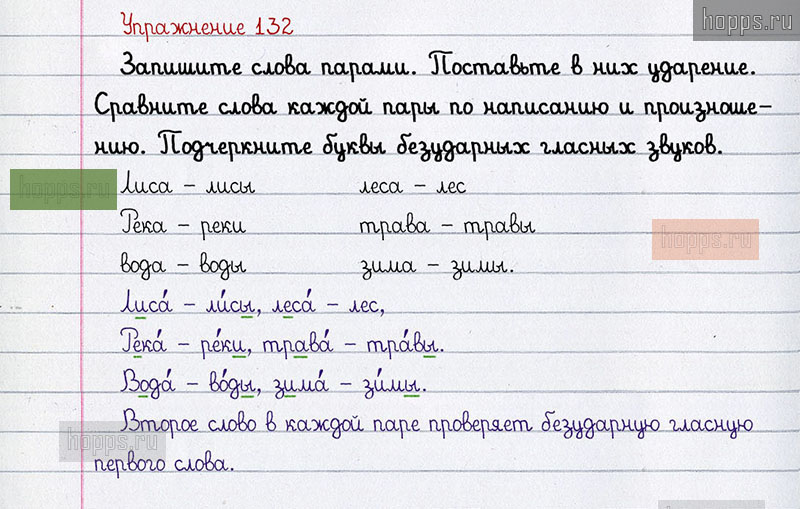 hopps.ru
Упражнение 132
Запишите слова парами. Поставьте в них ударение.
Сравните слова каждой пары по написанию и произноше-
нию. Подчеркните буквы безударных гласных звуков.
hopps.ru
Лиса – лисы леса – лес
Река – реки трава – травы
hopps.ru
вода – воды зима – зимы.
Лиса́ – ли́сы, леса́ – лес,
Река́ – ре́ки, трава́ – тра́вы.
Вода́ – во́ды, зима́ – зи́мы.
Второе слово в каждой паре проверяет безударную гласную
hopps.ru
первого слова.